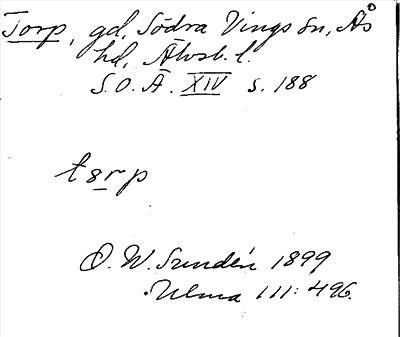 Torp, gd, Södra Vings sn, Ås
hd, Älvsb. l.
S.O.Ä. XIV s. 188
torp
O. W. Sundén 1899
Ulma 111:496.